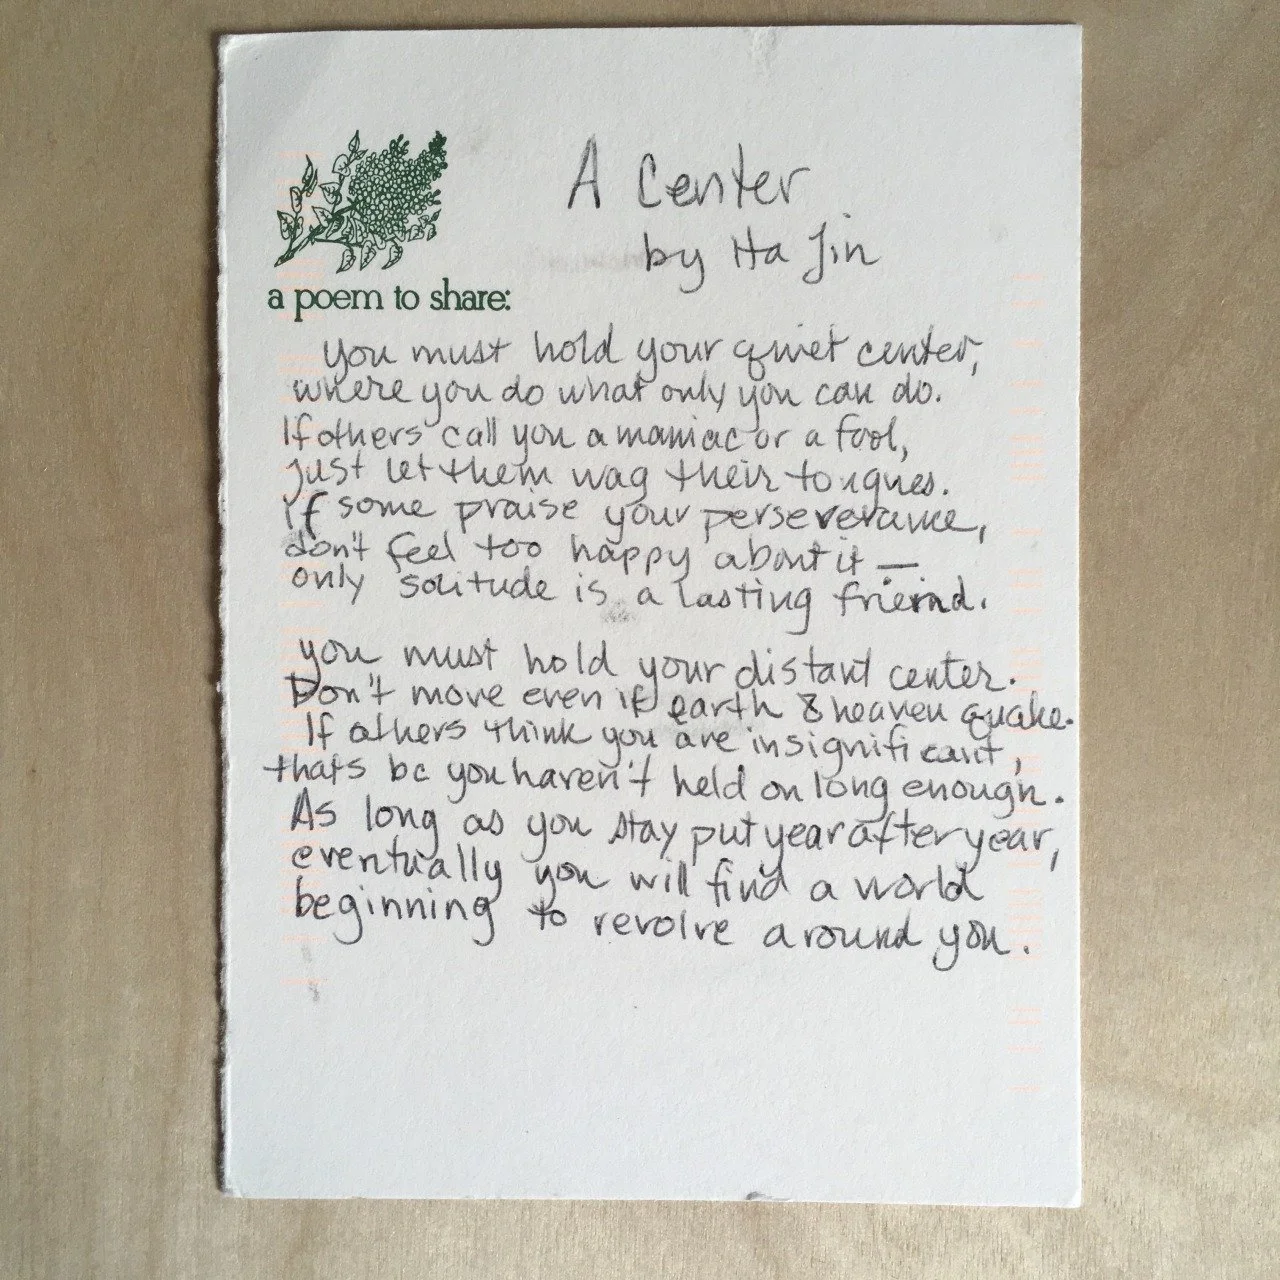 A Center
by Ha Jin
a poem to share:
You must hold your quiet center,
where you do what only you can do.
If others call you a maniac or a fool,
just let them wag their tongues.
If some praise your perseverance,
don't feel too happy about it —
only solitude is a lasting friend.
You must hold your distant center.
Don't move even if earth & heaven quake.
If others think you are insignificant,
thats bc you haven't held on long enough.
As long as you stay put year after year,
eventually you will find a world
beginning to revolve around you.